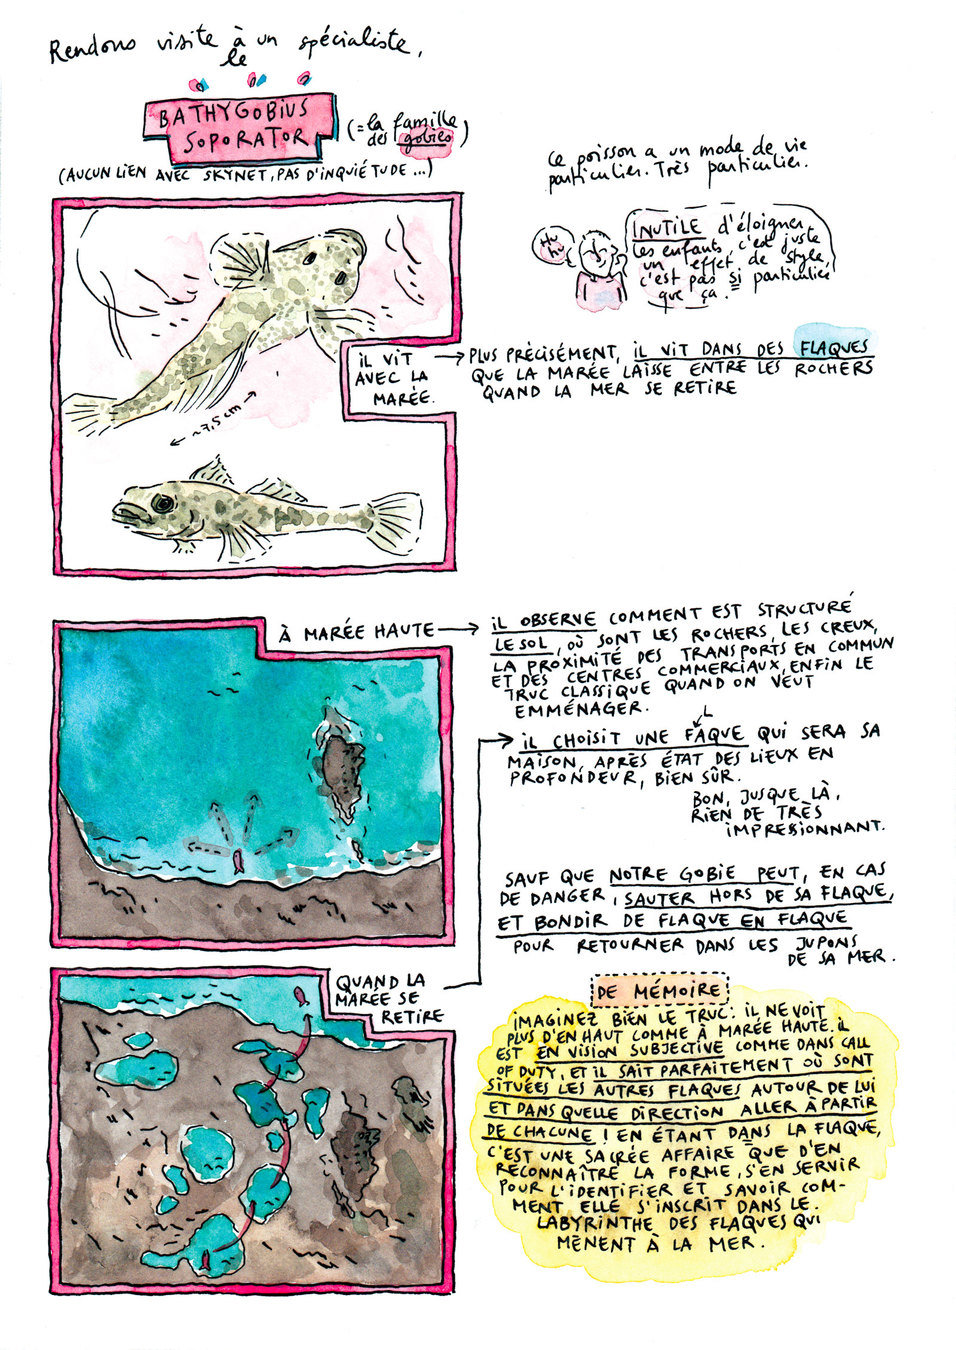 Rendons visite à un spécialiste,
le
BATHYGOBIUS
SOPORATOR
(= la famille
des gobies)
(AUCUN LIEN AVEC SKYNET, PAS D'INQUIÉTUDE...)
Ce poisson a un mode de vie
particulier. Très particulier.
Hu
hu
INUTILE d'éloigner
les enfants, c'est juste
un effet de style,
c'est pas si particulier
que ça.
~7,5 cm
IL VIT
AVEC LA
MARÉE.
PLUS PRÉCISÉMENT, IL VIT DANS DES FLAQUES
QUE LA MARÉE LAISSE ENTRE LES ROCHERS
QUAND LA MER SE RETIRE
À MARÉE HAUTE
IL OBSERVE COMMENT EST STRUCTURÉ
LE SOL, OÙ SONT LES ROCHERS, LES CREUX,
LA PROXIMITÉ DES TRANSPORTS EN COMMUN
ET DES CENTRES COMMERCIAUX, ENFIN LE
TRUC CLASSIQUE QUAND ON VEUT
EMMÉNAGER.
L
IL CHOISIT UNE FAQUE QUI SERA SA
MAISON, APRÈS ÉTAT DES LIEUX EN
PROFONDEUR, BIEN SÛR.
BON, JUSQUE LÀ,
RIEN DE TRÈS
IMPRESSIONNANT.
SAUF QUE NOTRE GOBIE PEUT, EN CAS
DE DANGER, SAUTER HORS DE SA FLAQUE,
ET BONDIR DE FLAQUE EN FLAQUE
POUR RETOURNER DANS LES JUPONS
DE SA MER.
QUAND LA
MARÉE SE
RETIRE
DE MÉMOIRE
IMAGINEZ BIEN LE TRUC: IL NE VOIT
PLUS D'EN HAUT COMME À MARÉE HAUTE. IL
EST EN VISION SUBJECTIVE COMME DANS CALL
OF DUTY, ET IL SAIT PARFAITEMENT OÙ SONT
SITUÉES LES AUTRES FLAQUES AUTOUR DE LUI
ET DANS QUELLE DIRECTION ALLER À PARTIR
DE CHACUNE ! EN ÉTANT DANS LA FLAQUE,
C'EST UNE SACRÉE AFFAIRE QUE D'EN
RECONNAÎTRE LA FORME, S'EN SERVIR
POUR L'IDENTIFIER ET SAVOIR COM-
MENT ELLE S'INSCRIT DANS LE.
LABYRINTHE DES FLAQUES QUI
MÈNENT À LA MER.